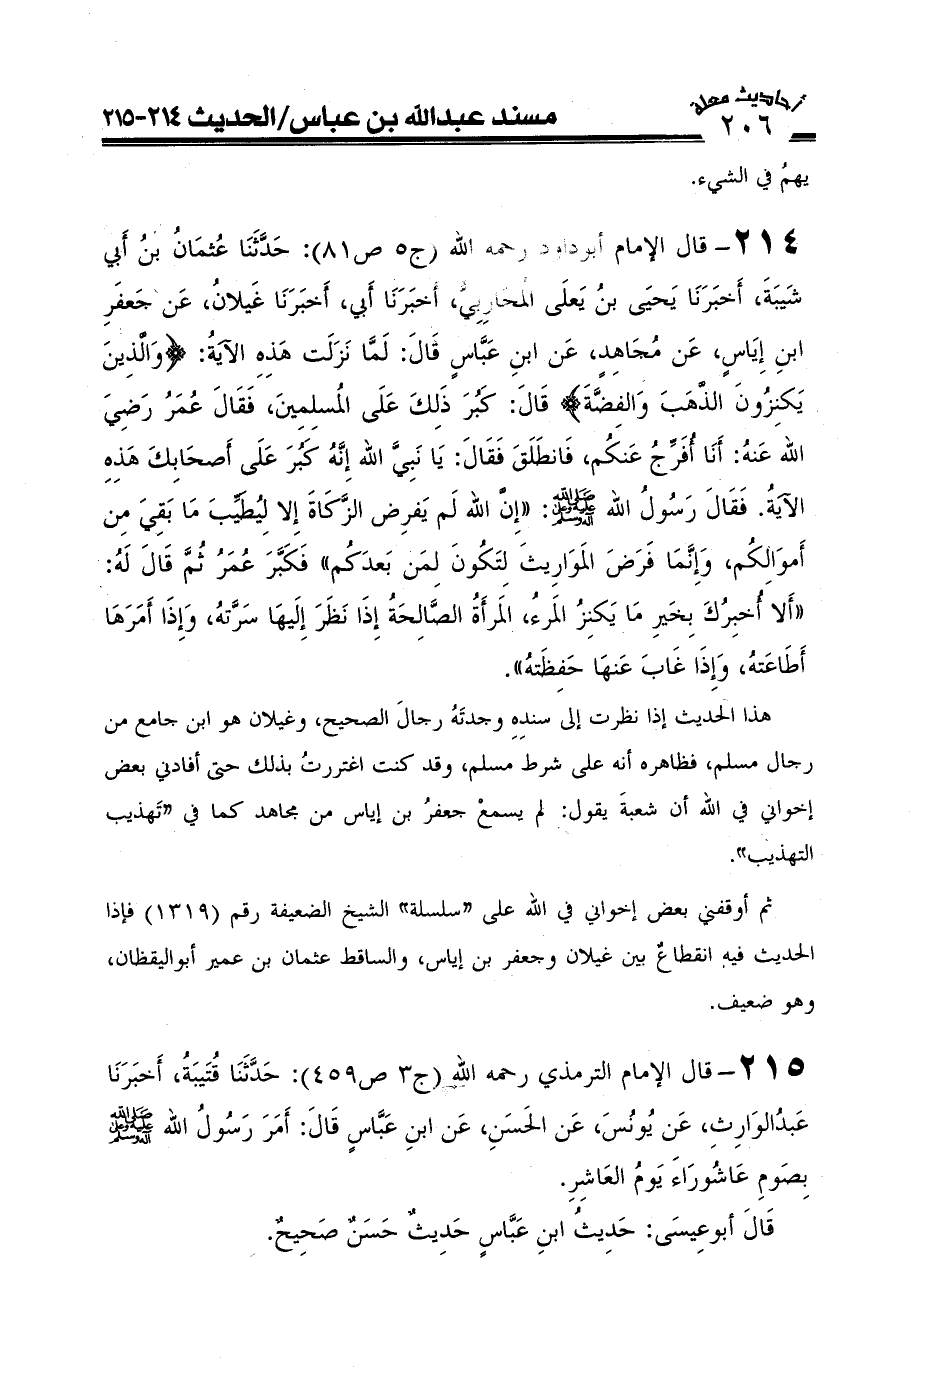 أحاديث معلة
٢٠٦
مسند عبدالله بن عباس/الحديث ٢١٤-٢١٥
يهمُ في الشيء.
٢١٤- قال الإمام أبوداود رحمه الله (ج٥ ص٨١): حَدَّثَنَا عُثمَانُ بنُ أَبي
شَيبَةَ، أَخبَرَنَا يَحيَى بنُ يَعلَى المُحَارِبيُّ، أَخبَرَنَا أَبي، أَخبَرَنَا غَيلانُ، عَن جَعفَرِ
ابنِ إِيَاسٍ، عَن مُجَاهِدٍ، عَن ابنِ عَبَّاسٍ قَالَ: لَمَّا نَزَلَت هَذِهِ الآيَةُ: ﴿وَالَّذِينَ
يَكنِزُونَ الذَّهَبَ وَالفِضَّةَ﴾ قَالَ: كَبُرَ ذَلِكَ عَلَى المُسلِمِينَ، فَقَالَ عُمَرُ رَضِيَ
الله عَنهُ: أَنَا أُفَرِّجُ عَنكُم، فَانطَلَقَ فَقَالَ: يَا نَبِيَّ الله إِنَّهُ كَبُرَ عَلَى أَصحَابِكَ هَذِهِ
الآيَةُ. فَقَالَ رَسُولُ الله ﷺ: «إِنَّ الله لَم يَفرِض الزَّكَاةَ إِلا لِيُطَيِّبَ مَا بَقِيَ مِن
أَموَالِكُم، وَإِنَّمَا فَرَضَ المَوَارِيثَ لِتَكُونَ لِمَن بَعدَكُم» فَكَبَّرَ عُمَرُ ثُمَّ قَالَ لَهُ:
«أَلا أُخبِرُكَ بِخَيرِ مَا يَكنِزُ المَرءُ، المَرأَةُ الصَّالِحَةُ إِذَا نَظَرَ إِلَيهَا سَرَّتهُ، وَإِذَا أَمَرَهَا
أَطَاعَتهُ، وَإِذَا غَابَ عَنهَا حَفِظَتهُ».
هذا الحديث إذا نظرت إلى سندِهِ وجدتَهُ رجالَ الصحيح، وغيلان هو ابن جامع من
رجال مسلم، فظاهره أنه على شرط مسلم، وقد كنت اغتررتُ بذلك حتى أفادني بعض
إخواني في الله أن شعبةَ يقول: لم يسمعْ جعفرُ بن إياس من مجاهد كما في "تَهذيب
التهذيب".
ثم أوقفني بعض إخواني في الله على "سلسلة" الشيخ الضعيفة رقم (١٣١٩) فإذا
الحديث فيه انقطاعٌ بين غيلان وجعفر بن إياس، والساقط عثمان بن عمير أبواليقظان،
وهو ضعيف.
٢١٥- قال الإمام الترمذي رحمه الله (ج٣ ص٤٥٩): حَدَّثَنَا قُتَيبَةُ، أَخبَرَنَا
عَبدُالوَارِثِ، عَن يُونُسَ، عَن الحَسَنِ، عَن ابنِ عَبَّاسٍ قَالَ: أَمَرَ رَسُولُ الله ﷺ
بِصَومِ عَاشُورَاءَ يَومُ العَاشِرِ.
قَالَ أَبوعِيسَى: حَدِيثُ ابنِ عَبَّاسٍ حَدِيثٌ حَسَنٌ صَحِيحٌ.